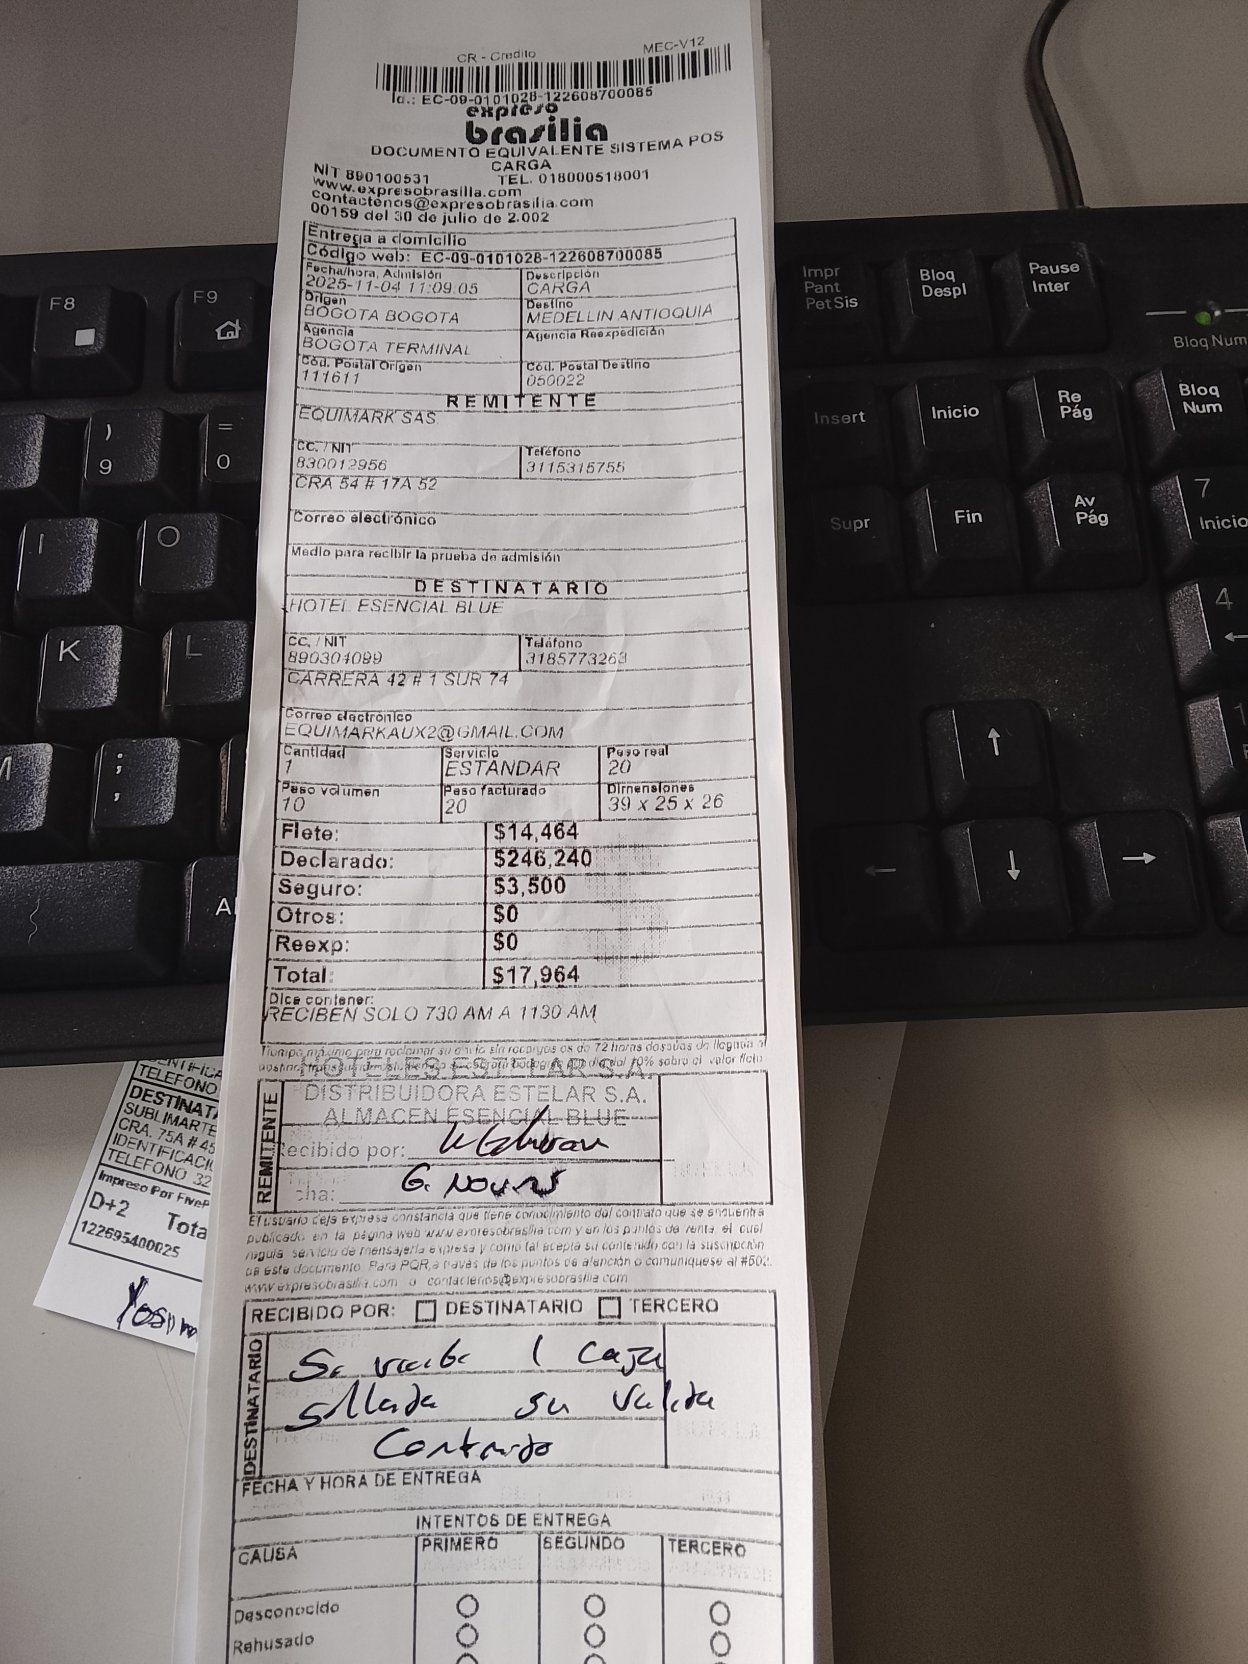 CR - Credito MEC-V12
Id.: EC-09-0101028-122608700085
expreso
brasilia
DOCUMENTO EQUIVALENTE SISTEMA POS
CARGA
NIT 890100531 TEL. 018000518001
www.expresobrasilia.com
contactenos@expresobrasilia.com
00159 del 30 de julio de 2.002
Entrega a domicilio
Código web: EC-09-0101028-122608700085
Fecha/hora, Admisión Descripción
2025-11-04 11:09.05 CARGA
Origen Destino
BOGOTA BOGOTA MEDELLIN ANTIOQUIA
Agencia Agencia Reexpedición
BOGOTA TERMINAL
Cód. Postal Origen Cód. Postal Destino
111611 050022
REMITENTE
EQUIMARK SAS
CC. / NIT Teléfono
830012956 3115315755
CRA 54 # 17A 52
Correo electrónico
Medio para recibir la prueba de admisión
DESTINATARIO
HOTEL ESENCIAL BLUE
CC. / NIT Teléfono
890304099 3185773263
CARRERA 42 # 1 SUR 74
Correo electrónico
EQUIMARKAUX2@GMAIL.COM
Cantidad Servicio Peso real
1 ESTANDAR 20
Peso volumen Peso facturado Dimensiones
10 20 39 x 25 x 26
Flete: $14,464
Declarado: $246,240
Seguro: $3,500
Otros: $0
Reexp: $0
Total: $17,964
Dice contener:
RECIBEN SOLO 730 AM A 1130 AM
Tiempo máximo para reclamar su envío sin recargos es de 72 horas después de llegada al
10% sobre el valor flete
HOTELES ESTELAR S.A.
DISTRIBUIDORA ESTELAR S.A.
ALMACEN ESENCIAL BLUE
REMITENTE
ecibido por:
cha: 6. Nov
El usuario deja expresa constancia que tiene conocimiento del contrato que se encuentra
publicado en la página web www.expresobrasilia.com y en los puntos de venta, el cual
regula servicio de mensajería expresa y como tal acepta su contenido con la suscripción
de este documento. Para PQR, a través de los puntos de atención o comuniquese al #502.
www.expresobrasilia.com o contactenos@expresobrasilia.com
RECIBIDO POR: DESTINATARIO TERCERO
DESTINATARIO
Se recibe 1 caja
sellada su valida
Contenido
FECHA Y HORA DE ENTREGA
INTENTOS DE ENTREGA
CAUSA PRIMERO SEGUNDO TERCERO
Desconocido
Rehusado
ENTIFICA
TELEFONO
DESTINATA
SUBLIMARTE
CRA. 75A # 45
IDENTIFICACI
TELEFONO 32
Impreso Por FiveP
D+2 Tota
122695400025
F8
F9
)
9
=
0
I
O
K
L
M
;
,
A
Impr
Pant
PetSis
Bloq
Despl
Pause
Inter
Bloq Num
Insert
Inicio
Re
Pág
Bloq
Num
Supr
Fin
Av
Pág
7
Inicio
4
1